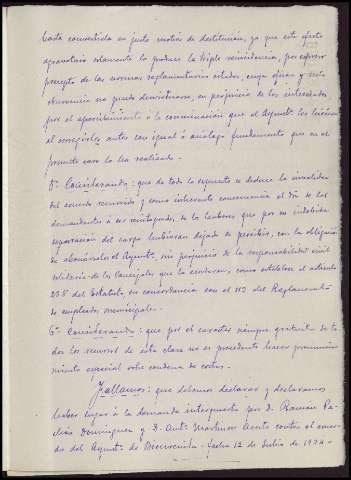 hasta convertirla en justo motivo de destitución, ya que este efecto
agravatorio solamente lo produce la triple reincidencia, por expreso
precepto de las normas reglamentarias citadas, cuya eficaz y recta
observancia no puede desvirtuarse, en perjuicio de los interesados
por el apercibimiento o la conminación que el Ayuntº. les hiciera
al corregirlos antes con igual o análogo fundamento que en el
presente caso lo ha realizado.
5º Considerando: que de todo lo expuesto se deduce la invalidez
del acuerdo recurrido y como inherente consecuencia el dro de los
demandantes a ser reintegrados, de los haberes que por su indebida
separación del cargo hubieran dejado de percibir, con la obligación
de abonárselos el Ayuntº, sin perjuicio de la responsabilidad civil
solidaria de los Concejales que la acordaron, como establece el artículo
238 del Estatuto, en concordancia con el 113 del Reglamento
de empleados municipales.
6º Considerando: que por el carácter siempre gratuito de to-
dos los recursos de esta clase no es procedente hacer pronuncia-
miento especial sobre condena de costas.
Fallamos: que debemos declarar y declaramos
haber lugar a la demanda interpuesta por D. Ramón
Domínguez y D. Antº. Martínez contra el acuer-
do del Ayuntº. de fecha 12 de Julio de